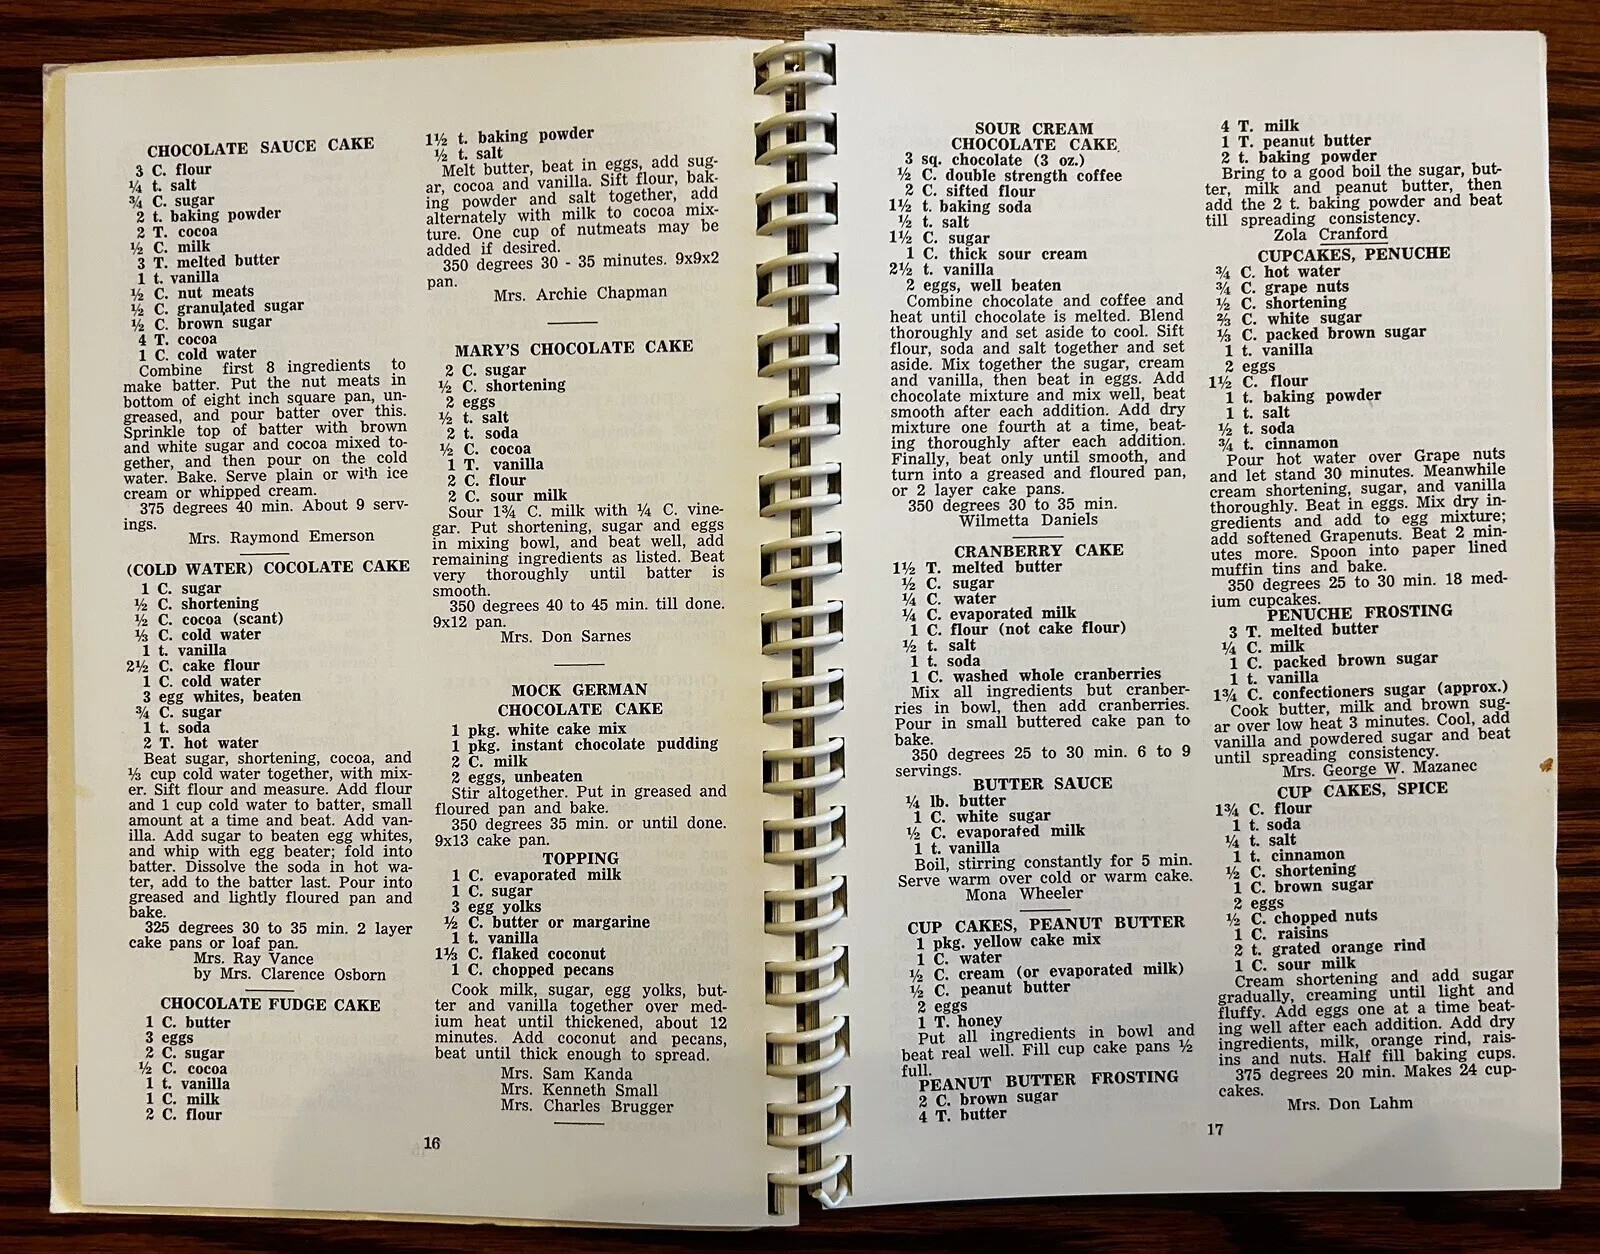 CHOCOLATE SAUCE CAKE
3 C. flour
¼ t. salt
¾ C. sugar
2 t. baking powder
2 T. cocoa
½ C. milk
3 T. melted butter
1 t. vanilla
½ C. nut meats
½ C. granulated sugar
½ C. brown sugar
4 T. cocoa
1 C. cold water
Combine first 8 ingredients to
make batter. Put the nut meats in
bottom of eight inch square pan, un-
greased, and pour batter over this.
Sprinkle top of batter with brown
and white sugar and cocoa mixed to-
gether, and then pour on the cold
water. Bake. Serve plain or with ice
cream or whipped cream.
375 degrees 40 min. About 9 serv-
ings.
Mrs. Raymond Emerson
(COLD WATER) COCOLATE CAKE
1 C. sugar
½ C. shortening
½ C. cocoa (scant)
⅓ C. cold water
1 t. vanilla
2½ C. cake flour
1 C. cold water
3 egg whites, beaten
¾ C. sugar
1 t. soda
2 T. hot water
Beat sugar, shortening, cocoa, and
⅓ cup cold water together, with mix-
er. Sift flour and measure. Add flour
and 1 cup cold water to batter, small
amount at a time and beat. Add van-
illa. Add sugar to beaten egg whites,
and whip with egg beater; fold into
batter. Dissolve the soda in hot wa-
ter, add to the batter last. Pour into
greased and lightly floured pan and
bake.
325 degrees 30 to 35 min. 2 layer
cake pans or loaf pan.
Mrs. Ray Vance
by Mrs. Clarence Osborn
CHOCOLATE FUDGE CAKE
1 C. butter
3 eggs
2 C. sugar
½ C. cocoa
1 t. vanilla
1 C. milk
2 C. flour
1½ t. baking powder
½ t. salt
Melt butter, beat in eggs, add sug-
ar, cocoa and vanilla. Sift flour, bak-
ing powder and salt together, add
alternately with milk to cocoa mix-
ture. One cup of nutmeats may be
added if desired.
350 degrees 30 - 35 minutes. 9x9x2
pan.
Mrs. Archie Chapman
MARY'S CHOCOLATE CAKE
2 C. sugar
½ C. shortening
2 eggs
½ t. salt
2 t. soda
½ C. cocoa
1 T. vanilla
2 C. flour
2 C. sour milk
Sour 1¾ C. milk with ¼ C. vine-
gar. Put shortening, sugar and eggs
in mixing bowl, and beat well, add
remaining ingredients as listed. Beat
very thoroughly until batter is
smooth.
350 degrees 40 to 45 min. till done.
9x12 pan.
Mrs. Don Sarnes
MOCK GERMAN
CHOCOLATE CAKE
1 pkg. white cake mix
1 pkg. instant chocolate pudding
2 C. milk
2 eggs, unbeaten
Stir altogether. Put in greased and
floured pan and bake.
350 degrees 35 min. or until done.
9x13 cake pan.
TOPPING
1 C. evaporated milk
1 C. sugar
3 egg yolks
½ C. butter or margarine
1 t. vanilla
1⅓ C. flaked coconut
1 C. chopped pecans
Cook milk, sugar, egg yolks, but-
ter and vanilla together over med-
ium heat until thickened, about 12
minutes. Add coconut and pecans,
beat until thick enough to spread.
Mrs. Sam Kanda
Mrs. Kenneth Small
Mrs. Charles Brugger
16
SOUR CREAM
CHOCOLATE CAKE
3 sq. chocolate (3 oz.)
½ C. double strength coffee
2 C. sifted flour
1½ t. baking soda
½ t. salt
1½ C. sugar
1 C. thick sour cream
2½ t. vanilla
2 eggs, well beaten
Combine chocolate and coffee and
heat until chocolate is melted. Blend
thoroughly and set aside to cool. Sift
flour, soda and salt together and set
aside. Mix together the sugar, cream
and vanilla, then beat in eggs. Add
chocolate mixture and mix well, beat
smooth after each addition. Add dry
mixture one fourth at a time, beat-
ing thoroughly after each addition.
Finally, beat only until smooth, and
turn into a greased and floured pan,
or 2 layer cake pans.
350 degrees 30 to 35 min.
Wilmetta Daniels
CRANBERRY CAKE
1½ T. melted butter
½ C. sugar
¼ C. water
¼ C. evaporated milk
1 C. flour (not cake flour)
½ t. salt
1 t. soda
1 C. washed whole cranberries
Mix all ingredients but cranber-
ries in bowl, then add cranberries.
Pour in small buttered cake pan to
bake.
350 degrees 25 to 30 min. 6 to 9
servings.
BUTTER SAUCE
¼ lb. butter
1 C. white sugar
½ C. evaporated milk
1 t. vanilla
Boil, stirring constantly for 5 min.
Serve warm over cold or warm cake.
Mona Wheeler
CUP CAKES, PEANUT BUTTER
1 pkg. yellow cake mix
1 C. water
½ C. cream (or evaporated milk)
½ C. peanut butter
2 eggs
1 T. honey
Put all ingredients in bowl and
beat real well. Fill cup cake pans ½
full.
PEANUT BUTTER FROSTING
2 C. brown sugar
4 T. butter
4 T. milk
1 T. peanut butter
2 t. baking powder
Bring to a good boil the sugar, but-
ter, milk and peanut butter, then
add the 2 t. baking powder and beat
till spreading consistency.
Zola Cranford
CUPCAKES, PENUCHE
¾ C. hot water
¾ C. grape nuts
½ C. shortening
⅔ C. white sugar
⅓ C. packed brown sugar
1 t. vanilla
2 eggs
1½ C. flour
1 t. baking powder
1 t. salt
½ t. soda
¾ t. cinnamon
Pour hot water over Grape nuts
and let stand 30 minutes. Meanwhile
cream shortening, sugar, and vanilla
thoroughly. Beat in eggs. Mix dry in-
gredients and add to egg mixture;
add softened Grapenuts. Beat 2 min-
utes more. Spoon into paper lined
muffin tins and bake.
350 degrees 25 to 30 min. 18 med-
ium cupcakes.
PENUCHE FROSTING
3 T. melted butter
¼ C. milk
1 C. packed brown sugar
1 t. vanilla
1¾ C. confectioners sugar (approx.)
Cook butter, milk and brown sug-
ar over low heat 3 minutes. Cool, add
vanilla and powdered sugar and beat
until spreading consistency.
Mrs. George W. Mazanec
CUP CAKES, SPICE
1¾ C. flour
1 t. soda
¼ t. salt
1 t. cinnamon
½ C. shortening
1 C. brown sugar
2 eggs
½ C. chopped nuts
1 C. raisins
2 t. grated orange rind
1 C. sour milk
Cream shortening and add sugar
gradually, creaming until light and
fluffy. Add eggs one at a time beat-
ing well after each addition. Add dry
ingredients, milk, orange rind, rais-
ins and nuts. Half fill baking cups.
375 degrees 20 min. Makes 24 cup-
cakes.
Mrs. Don Lahm
17